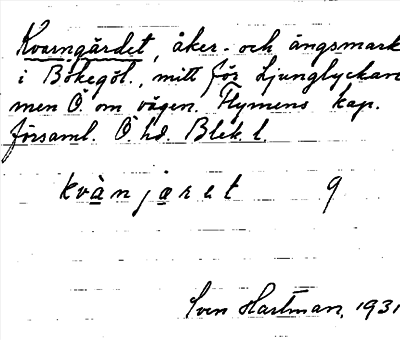 Kvarngärdet, åker- och ängsmark
i Bökegöl., mitt för Ljunglyckan
men Ö om vägen. Flymens kap.
församl. Ö hd. Blek. l.
kvànjæret 9
Sven Hartman, 1931